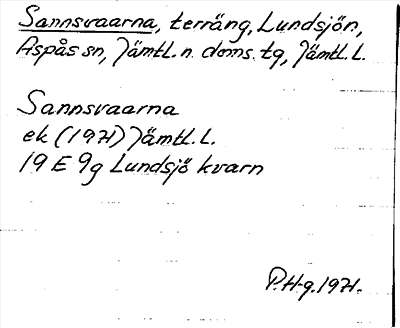 Sannsvaarna, terräng, Lundsjön,
Aspås sn, Jämtl. n. doms. tg, Jämtl. L.
Sannsvaarna
ek (1971) Jämtl. L.
19 E 9g Lundsjö kvarn
P. H-g. 1971.